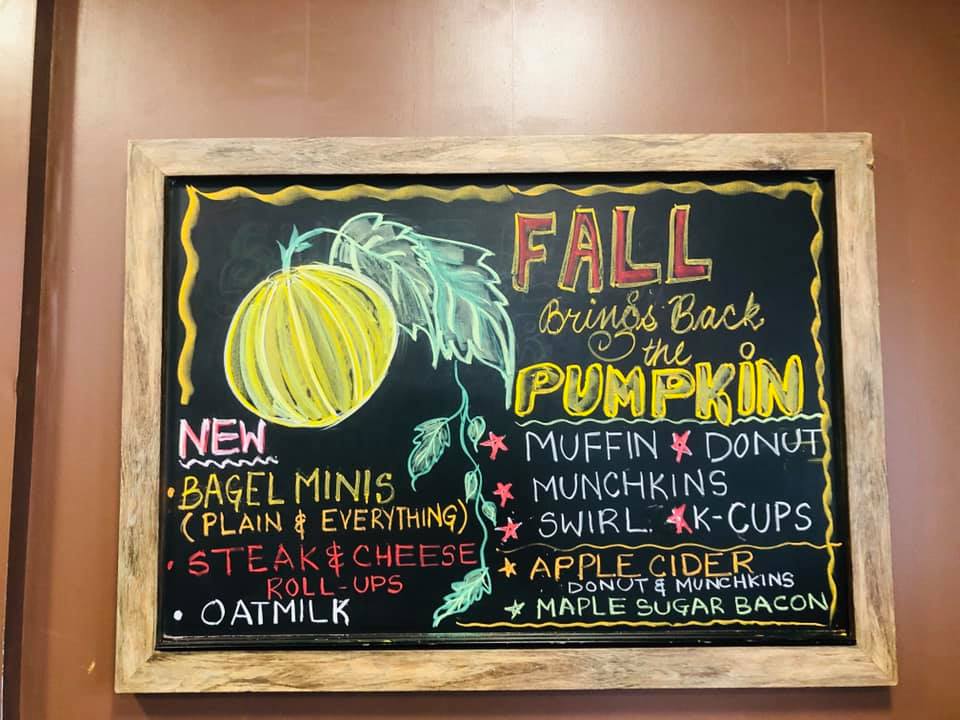 FALL
Brings Back
the
PUMPKIN
MUFFIN DONUT
MUNCHKINS
SWIRL. K-CUPS
APPLE CIDER
DONUT & MUNCHKINS
MAPLE SUGAR BACON
NEW
• BAGEL MINIS
(PLAIN & EVERYTHING)
• STEAK & CHEESE
ROLL-UPS
• OATMILK